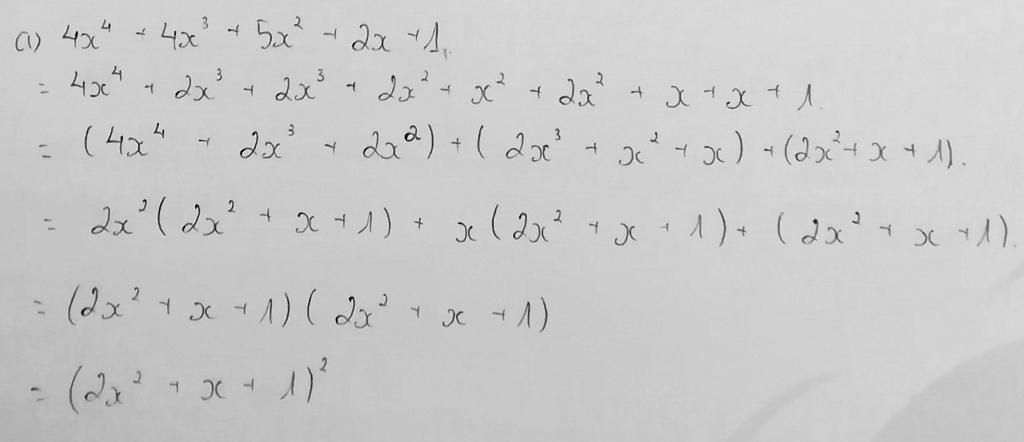 a) 4x⁴ + 4x³ + 5x² + 2x + 1.
= 4x⁴ + 2x³ + 2x³ + 2x² + x² + 2x² + x + x + 1.
= (4x⁴ + 2x³ + 2x²) + (2x³ + x² + x) + (2x² + x + 1).
= 2x²(2x² + x + 1) + x(2x² + x + 1) + (2x² + x + 1).
= (2x² + x + 1)(2x² + x + 1)
= (2x² + x + 1)²